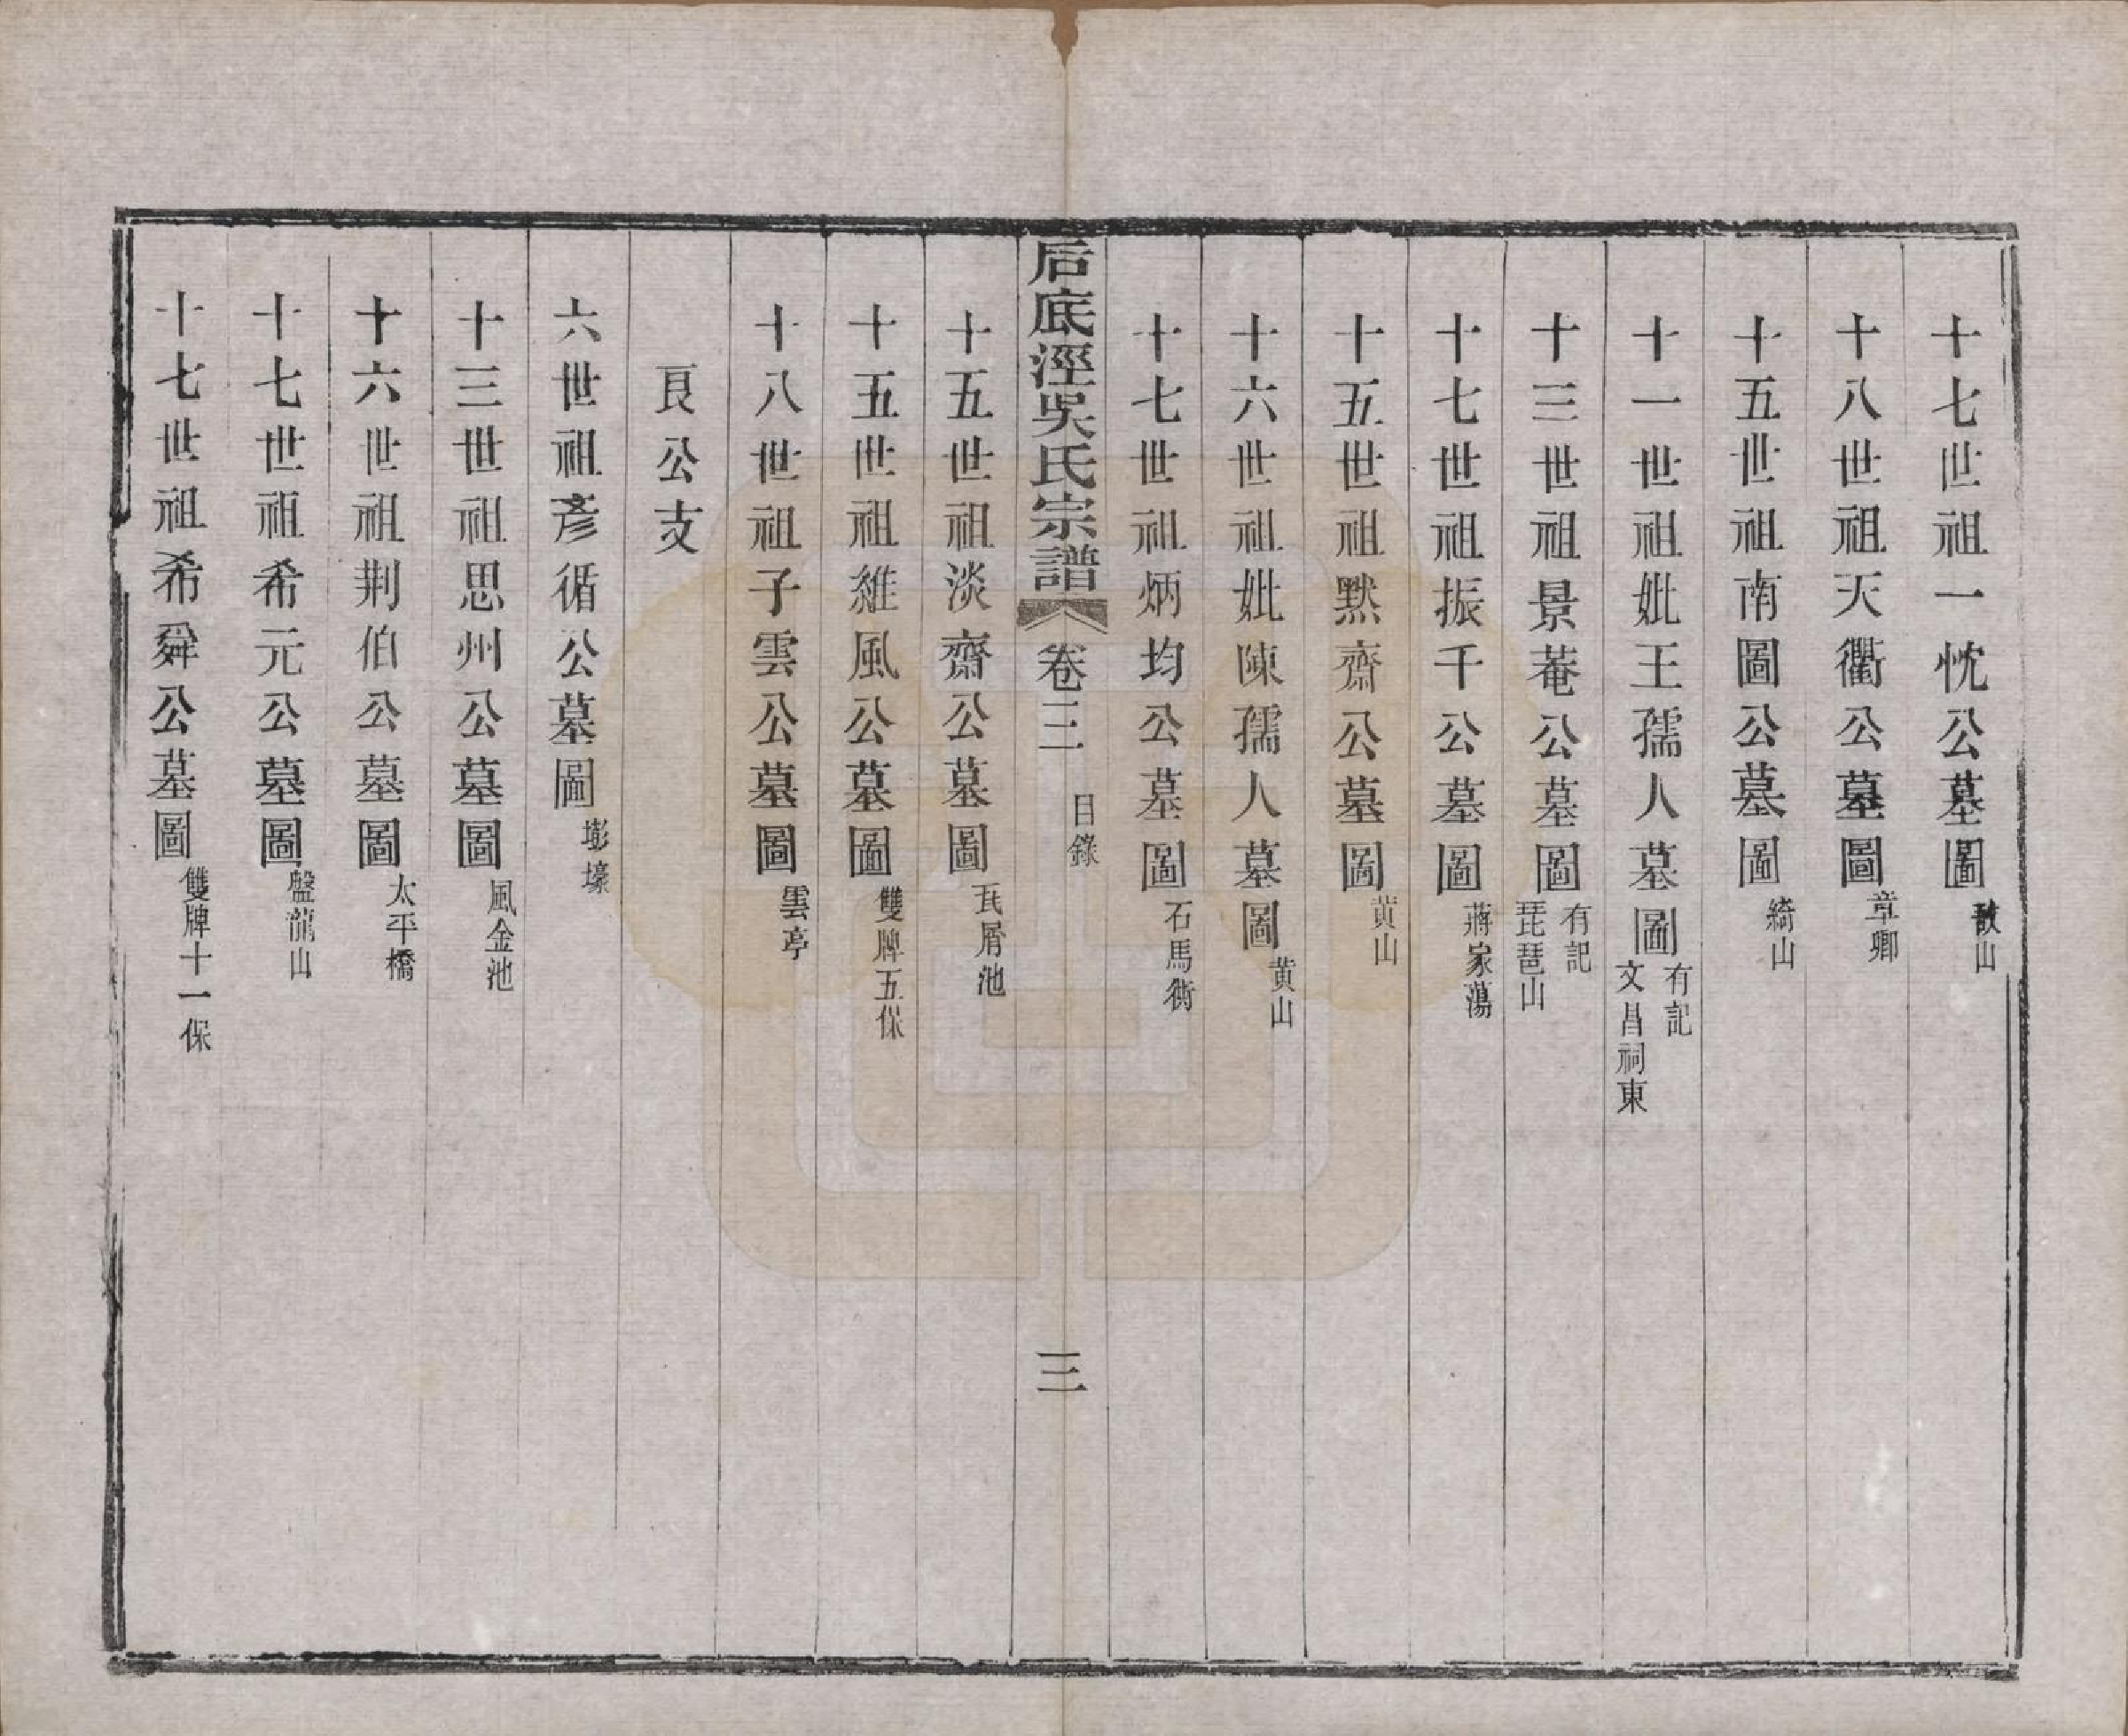 十七世祖一忱公墓圖 敔山
十八世祖天衢公墓圖 章卿
十五世祖南圖公墓圖 綺山
十一世祖妣王孺人墓圖 有記 文昌祠東
十三世祖景菴公墓圖 有記 琵琶山
十七世祖振千公墓圖 蔣家蕩
十五世祖默齋公墓圖 黄山
十六世祖妣陳孺人墓圖 黄山
十七世祖炳均公墓圖 石馬衖
后底涇吳氏宗譜 卷三 目錄 三
十五世祖淡齋公墓圖 瓦屑池
十五世祖維風公墓圖 雙牌五保
十八世祖子雲公墓圖 雲亭
艮公支
六世祖彥循公墓圖 塳壕
十三世祖思州公墓圖 風金池
十六世祖荆伯公墓圖 太平橋
十七世祖希元公墓圖 盤龍山
十七世祖希舜公墓圖 雙牌十一保